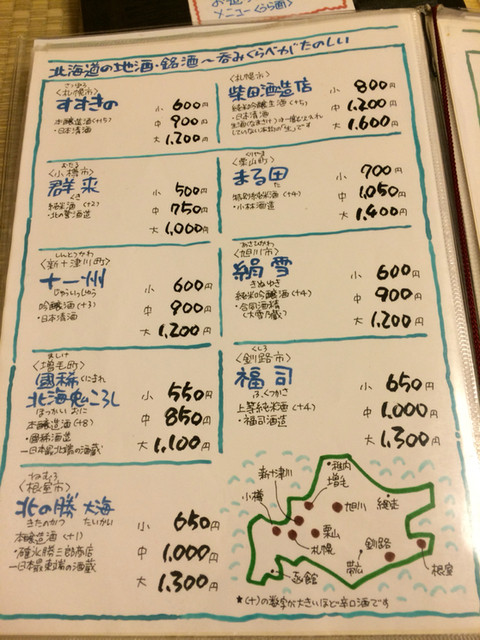 メニュー(うら面)
北海道の地酒・銘酒〜呑みくらべがたのしい
さっぽろ
〈札幌市〉
すすきの
本醸造酒(+5)
・日本清酒
小 600円
中 900円
大 1,200円
〈札幌市〉
柴田酒造店
純米吟醸生酒(+5)
・日本清酒
小 800円
中 1,200円
大 1,600円
おたる
〈小樽市〉
群来
くき
純米酒(+2)
・北の誉酒造
小 500円
中 750円
大 1,000円
くりやま
〈栗山町〉
まる田
た
特別純米酒(+4)
・小林酒造
小 700円
中 1,050円
大 1,400円
しんとつかわ
〈新十津川町〉
十一州
じゅういっしゅう
吟醸酒(+3)
・日本清酒
小 600円
中 900円
大 1,200円
あさひかわ
〈旭川市〉
絹雪
きぬゆき
純米吟醸酒(+4)
・合同酒精
(大雪乃蔵)
小 600円
中 900円
大 1,200円
ましけ
〈増毛町〉
國稀 くにまれ
北海鬼ころし
ほっかい おに
本醸造酒(+8)
・國稀酒造
―日本最北端の酒蔵
小 550円
中 850円
大 1,100円
くしろ
〈釧路市〉
福司
ふくつかさ
上等純米酒(+4)
・福司酒造
小 650円
中 1,000円
大 1,300円
ねむろ
〈根室市〉
北の勝 大海
きたのかつ たいかい
本醸造酒(+1)
・碓氷勝三郎商店
―日本最東端の酒蔵
小 650円
中 1,000円
大 1,300円
稚内
増毛
新十津川
小樽
旭川
栗山
札幌
釧路
帯広
根室
函館
★(+)の数字が大きいほど辛口酒です